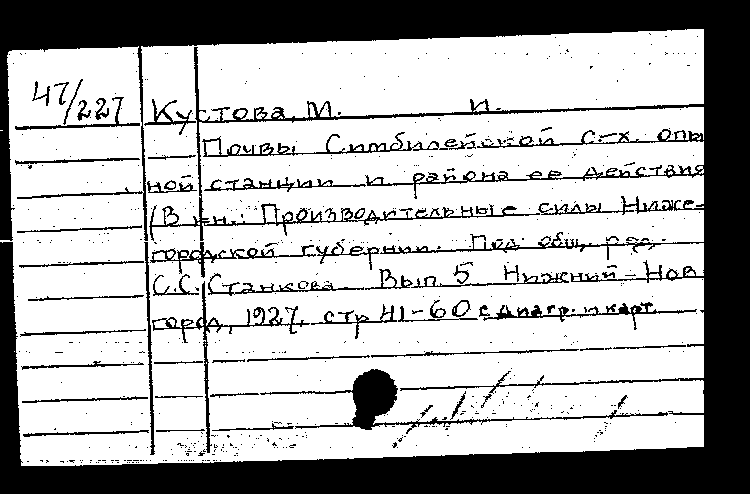 47/227 Кустова, М. И.
Почвы Симбилейской с-х. опы
ной станции и района ее действия
(В кн.: Производительные силы Ниже-
городской губернии. Под общ. ред.
С.С. Станкова. Вып. 5 Нижний-Нов
город, 1927, стр 41-60 с диагр. и карт.